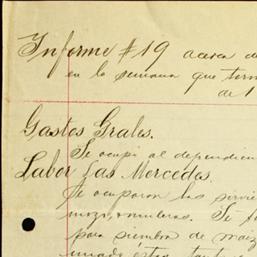 Informe #19 acerca de
en la semana que term
de 1
Gastos Grales.
Se ocupó al dependien
Labor Las Mercedes.
Se ocuparon los sirvie
mozo,
para siembra de maiz